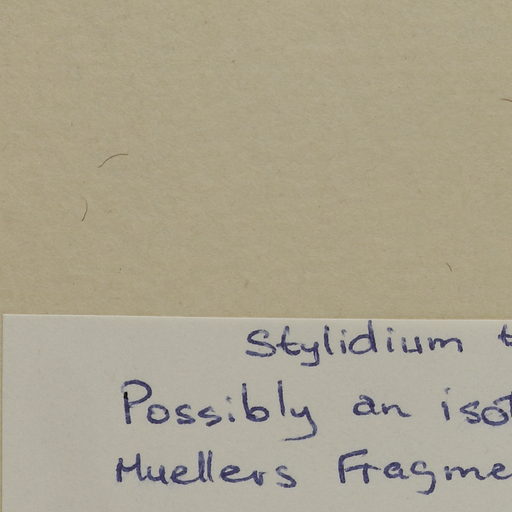 Stylidium t
Possibly an isot
Muellers Fragme